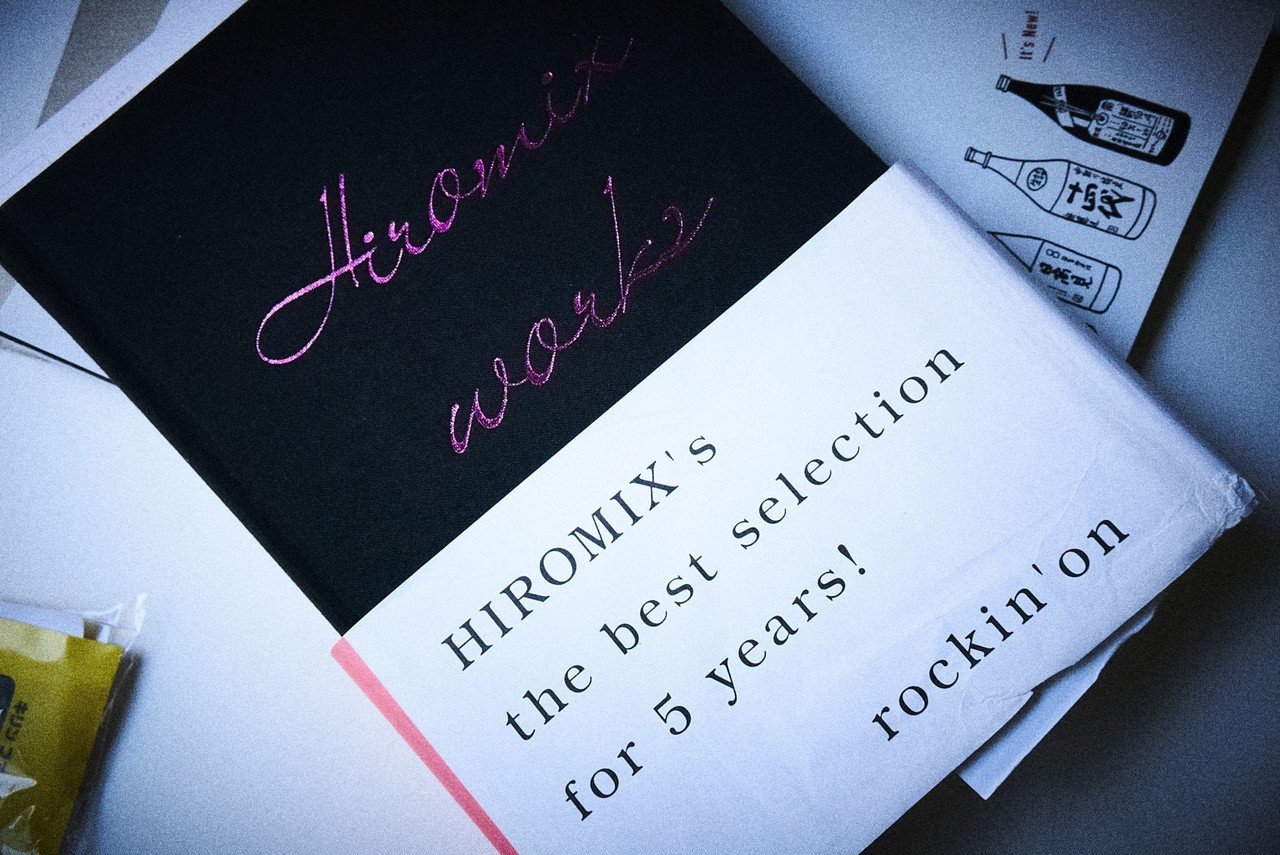 Hiromix
works
HIROMIX's
the best selection
for 5 years!
rockin'on
It's New!